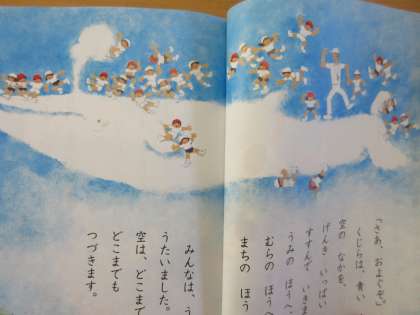 「さあ、およぐぞ。」
くじらは、青い
空の なかを、
げんき いっぱい
すすんで いきま
うみの ほうへ
むらの ほうへ
まちの ほう
みんなは、う
うたいました。
空は、どこまで
どこまでも
つづきます。